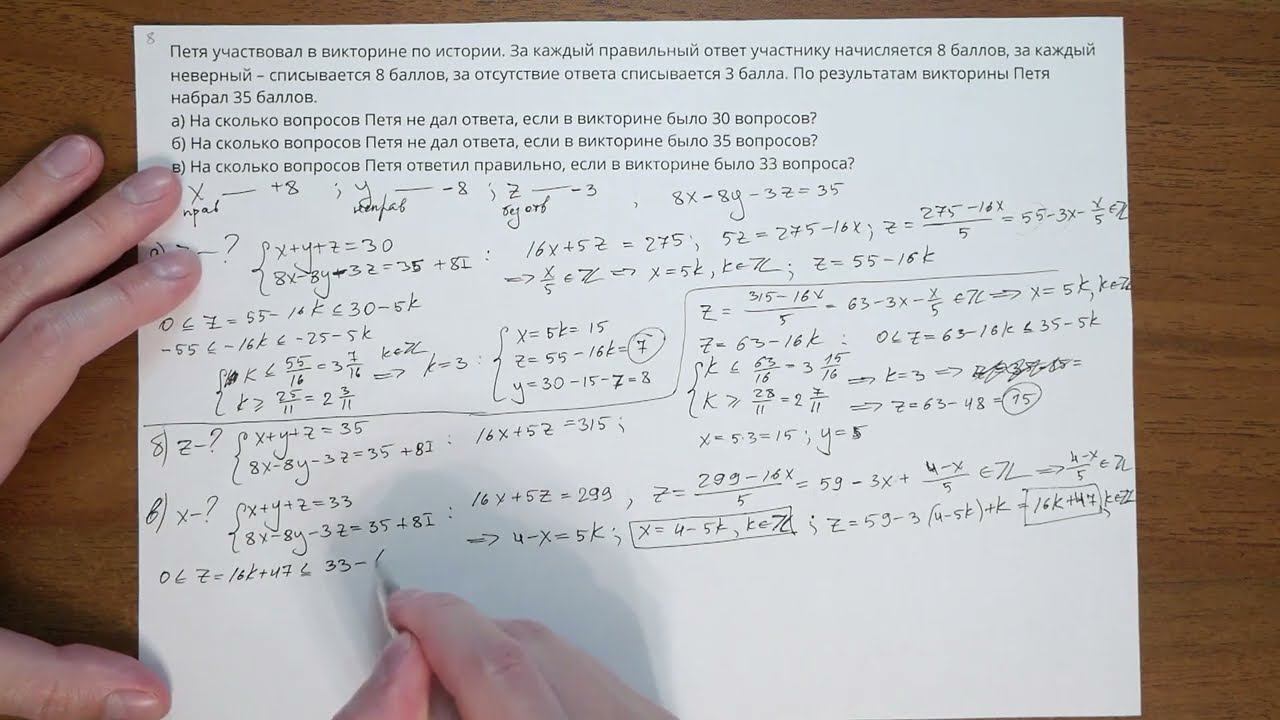 8
Петя участвовал в викторине по истории. За каждый правильный ответ участнику начисляется 8 баллов, за каждый
неверный – списывается 8 баллов, за отсутствие ответа списывается 3 балла. По результатам викторины Петя
набрал 35 баллов.
а) На сколько вопросов Петя не дал ответа, если в викторине было 30 вопросов?
б) На сколько вопросов Петя не дал ответа, если в викторине было 35 вопросов?
в) На сколько вопросов Петя ответил правильно, если в викторине было 33 вопроса?
x — +8 ; y — -8 ; z — -3 , 8x-8y-3z=35
прав неправ без отв
— ? { x+y+z=30 : 16x+5z = 275; 5z=275-16x; z= (275-16x)/5 = 55-3x-x/5 ∈ ℤ
8x-8y-3z=35 +8I ⇒ x/5 ∈ ℤ ⇒ x=5k, k∈ℤ; z=55-16k
0 ≤ z=55-16k ≤ 30-5k
-55 ≤ -16k ≤ -25-5k
{ k ≤ 55/16 = 3 7/16 k∈ℤ ⇒ k=3 : { x=5k=15
k ≥ 25/11 = 2 3/11 z=55-16k=7
y=30-15-7=8
z= (315-16x)/5 = 63-3x-x/5 ∈ ℤ ⇒ x=5k, k∈ℤ
z=63-16k : 0≤z=63-16k ≤ 35-5k
{ k ≤ 63/16 = 3 15/16 ⇒ k=3 ⇒
k ≥ 28/11 = 2 7/11 ⇒ z=63-48=15
x=5·3=15 ; y=5
б) z-? { x+y+z=35 : 16x+5z=315;
8x-8y-3z=35 +8I
в) x-? { x+y+z=33 : 16x+5z=299 , z= (299-16x)/5 = 59-3x+ (4-x)/5 ∈ ℤ ⇒ (4-x)/5 ∈ ℤ
8x-8y-3z=35+8I ⇒ 4-x=5k; x=4-5k, k∈ℤ ; z=59-3(4-5k)+k=16k+47, k∈ℤ
0 ≤ z=16k+47 ≤ 33-